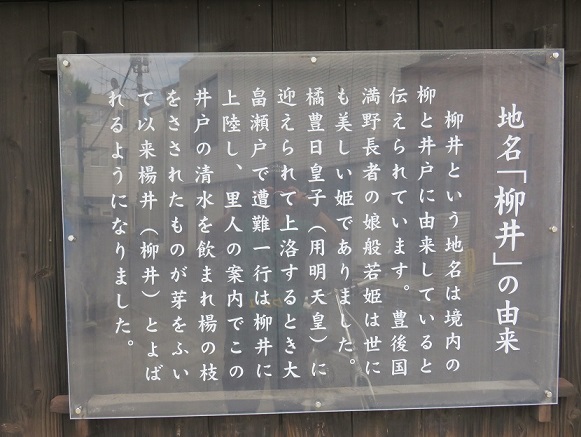 地名「柳井」の由来
柳井という地名は境内の
柳と井戸に由来していると
伝えられています。豊後国
満野長者の娘般若姫は世に
も美しい姫でありました。
橘豊日皇子（用明天皇）に
迎えられて上洛するとき大
畠瀬戸で遭難一行は柳井に
上陸し、里人の案内でこの
井戸の清水を飲まれ楊の枝
をさされたものが芽をふい
て以来楊井（柳井）とよば
れるようになりました。